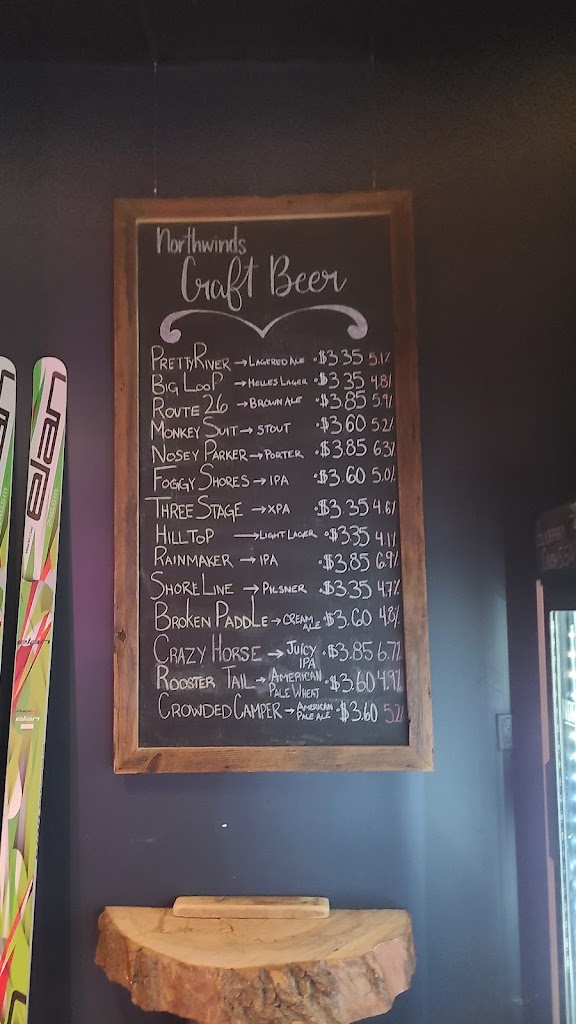 Northwinds
Craft Beer
PRETTY RIVER → LAGERED ALE • $3.35 5.1%
BIG LOOP → HELLES LAGER • $3.35 4.8%
ROUTE 26 → BROWN ALE • $3.85 5.9%
MONKEY SUIT → STOUT • $3.60 5.2%
NOSEY PARKER → PORTER • $3.85 6.3%
FOGGY SHORES → IPA • $3.60 5.0%
THREE STAGE → XPA • $3.35 4.6%
HILLTOP → LIGHT LAGER • $3.35 4.1%
RAINMAKER → IPA • $3.85 6.9%
SHORELINE → PILSNER • $3.35 4.7%
BROKEN PADDLE → CREAM ALE • $3.60 4.8%
CRAZY HORSE → JUICY IPA • $3.85 6.7%
ROOSTER TAIL → AMERICAN PALE WHEAT • $3.60 4.9%
CROWDED CAMPER → AMERICAN PALE ALE • $3.60 5.2%
elan
elan
elan